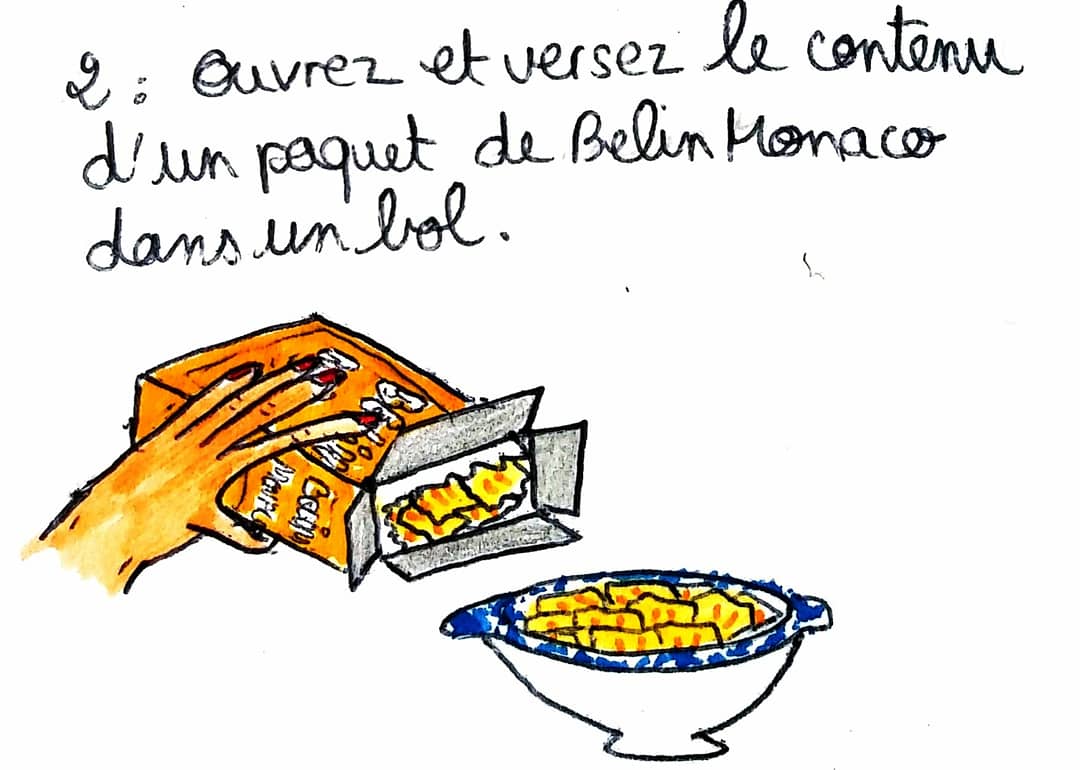 2 : Ouvrez et versez le contenu
d'un paquet de Belin Monaco
dans un bol.